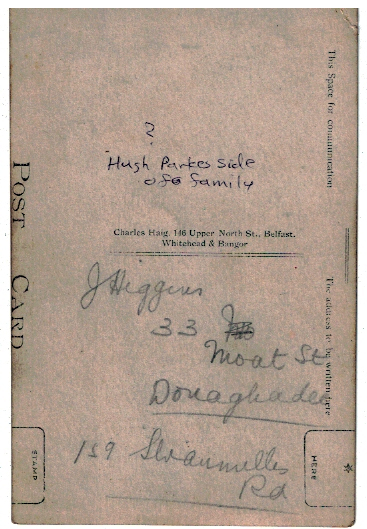 ?
Hugh Parkes side
of family
Charles Haig, 146 Upper North St., Belfast.
Whitehead & Bangor
J Higgins
33
Moat St
Donaghadee
159 Stranmillis
Rd
POST CARD
This Space for communication
The address to be written here
STAMP
HERE